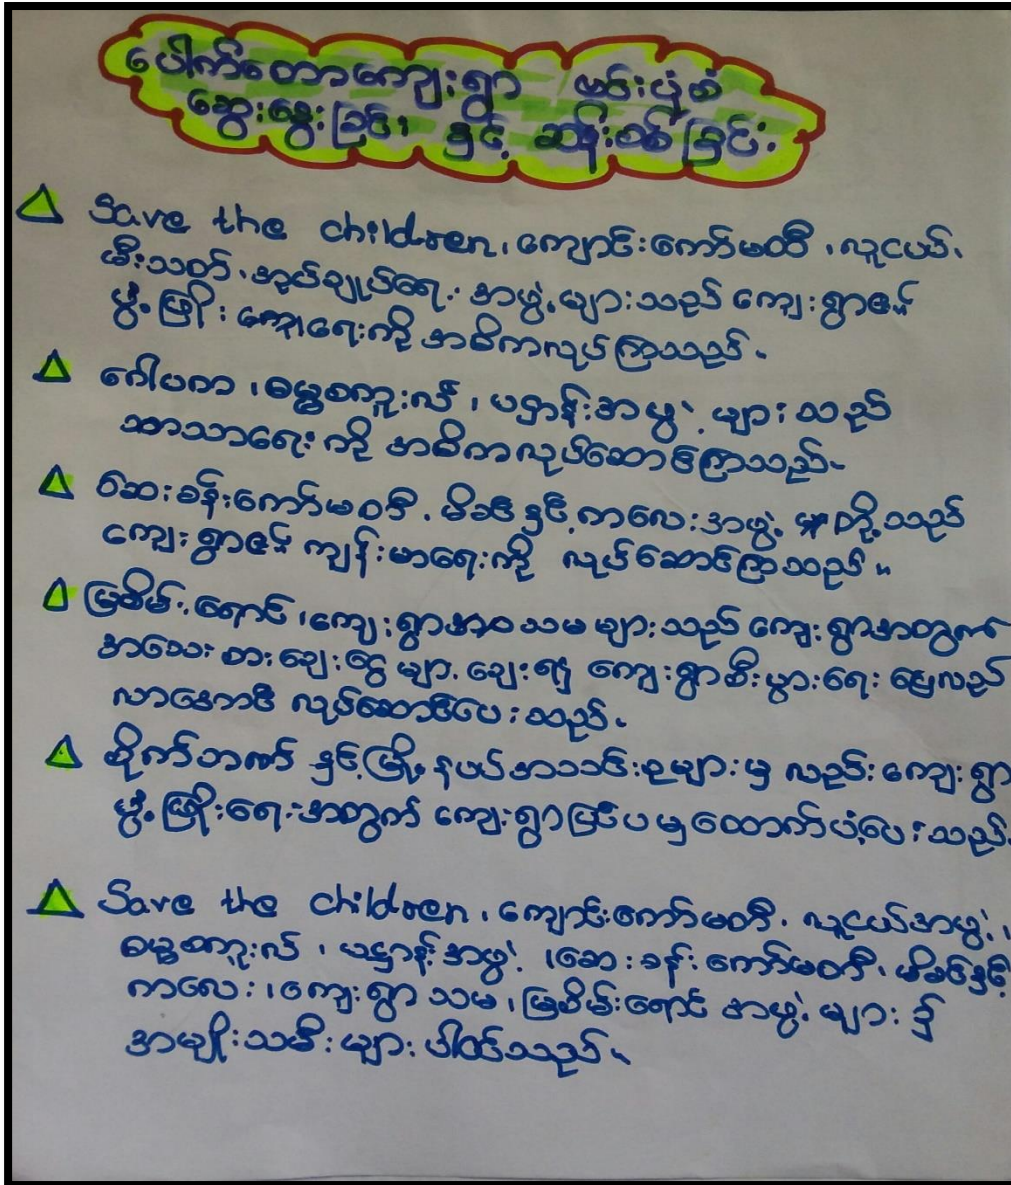 ပေါက်တောကျေးရွာ ဗင်းပုံစံ
ဆွေးနွေးခြင်း နှင့် ဆန်းစစ်ခြင်း
Save the children, ကျောင်းကော်မတီ, လူငယ်,
မီးသတ်, အုပ်ချုပ်ရေး အဖွဲ့များသည် ကျေးရွာ၏
ဖွံ့ဖြိုး ရေးကို အဓိကလုပ်ကြသည်။
ဂေါပက, ဓမ္မစကူးလ်, ပဌာန်းအဖွဲ့ များသည်
သာသာရေး ကို အဓိကလုပ်ဆောင်ကြသည်။
ဆေးခန်းကော်မတီ, မိခင်နှင့်ကလေးအဖွဲ့ တို့သည်
ကျေးရွာ၏ ကျန်းမာရေးကို လုပ်ဆောင်ကြသည်။
မြစိမ်းရောင်, ကျေးရွာ သမ များသည် ကျေးရွာအတွက်
အသေးစားချေးငွေ များ ချေး၍ ကျေးရွာစီးပွားရေး
လုပ်ဆောင်ပေးသည်။
စိုက်ဘဏ် နှင့်မြို့နယ်အသင်းစုများမှ လည်းကျေးရွာ
ဖွံ့ဖြိုးရေးအတွက် ကျေးရွာပြင်ပမှထောက်ပံ့ပေးသည်။
Save the children, ကျောင်းကော်မတီ, လူငယ်အဖွဲ့,
ဓမ္မစကူးလ်, ပဌာန်းအဖွဲ့, ဆေးခန်းကော်မတီ, မိခင်နှင့်
ကလေး, ကျေးရွာ သမ, မြစိမ်းရောင် အဖွဲ့များ ၌
အမျိုးသမီးများ ပါဝင်သည်။